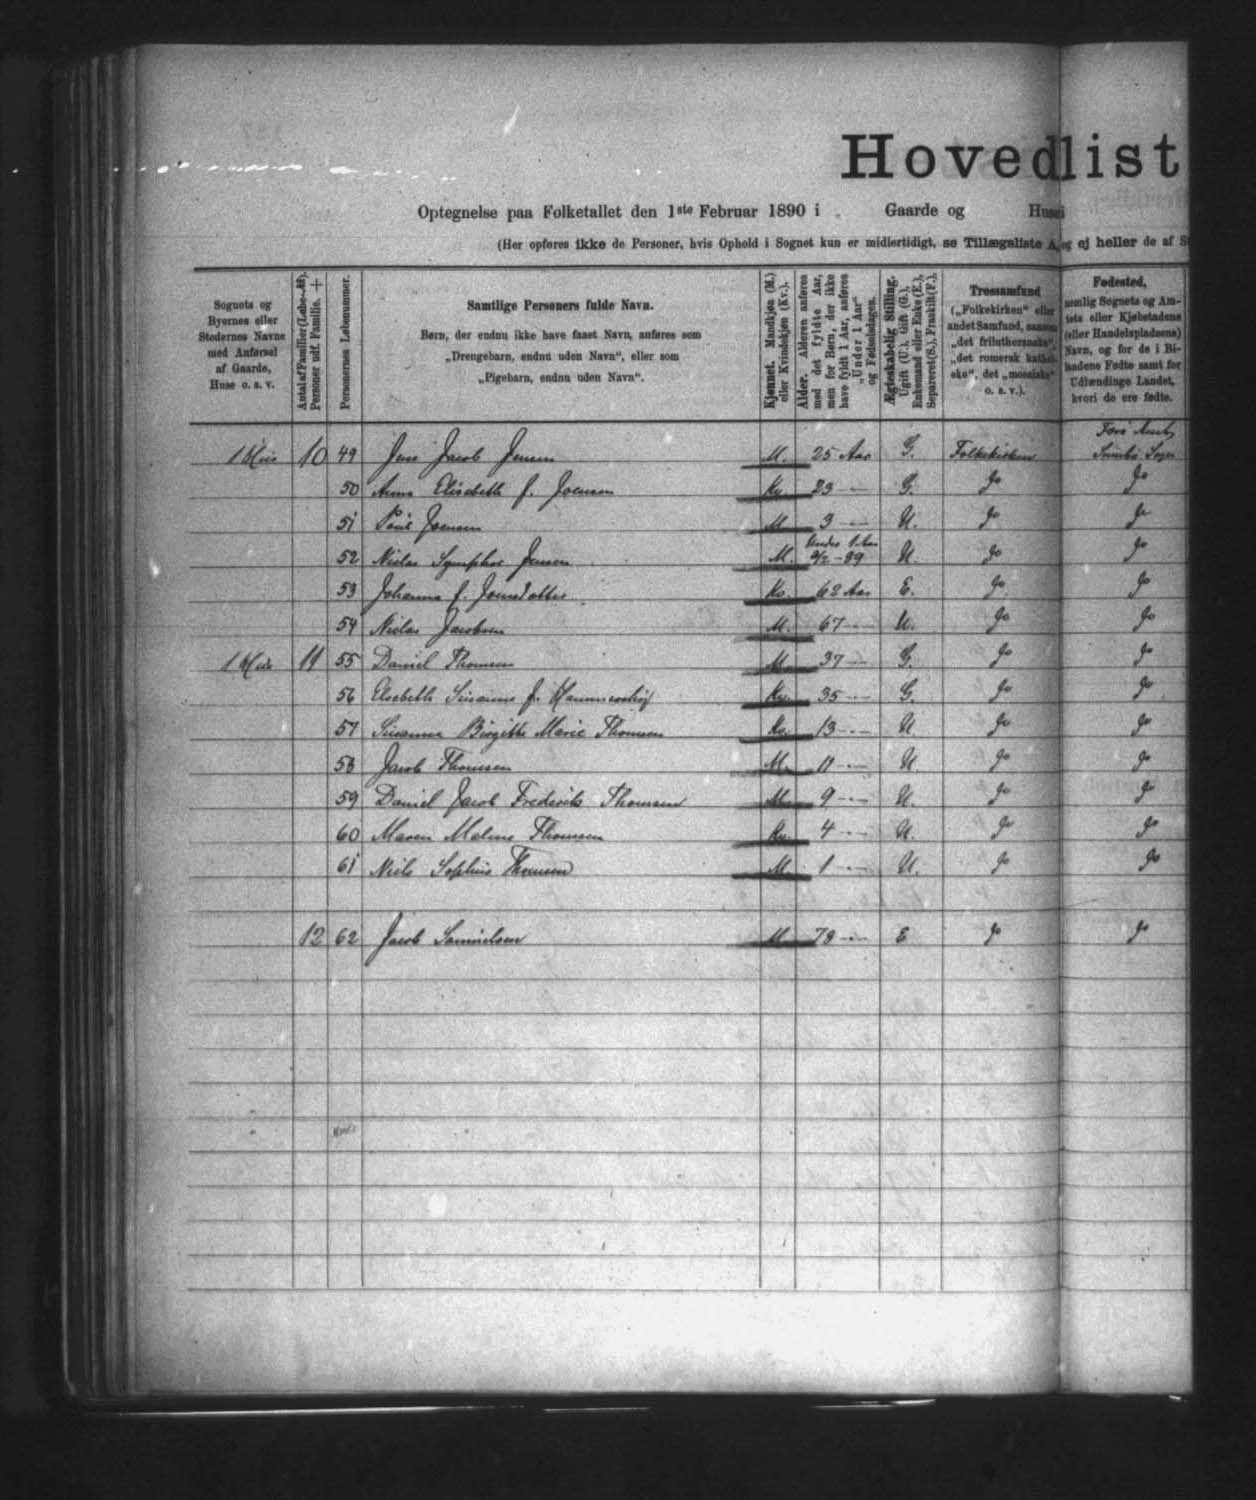 Hovedlist
Optegnelse paa Folketallet den 1ste Februar 1890 i Gaarde og Huse i
(Her opføres ikke de Personer, hvis Ophold i Sognet kun er midlertidigt, se Tillægsliste A, og ej heller de af S
Sognets og Byernes eller Stedernes Navne med Anførsel af Gaarde, Huse o. s. v.
Antal af Familier (Løbe-№). Personer udf. Familie. +
Personernes Løbenummer.
Samtlige Personers fulde Navn.
Børn, der endnu ikke have faaet Navn, anføres som
„Drengebarn, endnu uden Navn“, eller som
„Pigebarn, endnu uden Navn“.
Kjønnet. Mandkjøn (M.) eller Kvindekjøn (Kv.).
Alder. Alderen anføres med det fyldte Aar, men for Børn, der ikke have fyldt 1 Aar, anføres „Under 1 Aar“ og Fødselsdagen.
Ægteskabelig Stilling. Ugift (U.), Gift (G.), Enkemand eller Enke (E.), Separeret (S.), Fraskilt (F.).
Trossamfund („Folkekirken“ eller andet Samfund, saasom „det frilutherske“, „det romersk katholske“, det „mosaiske“ o. s. v.).
Fødested, nemlig Sognets og Amtets eller Kjøbstadens (eller Handelspladsens) Navn, og for de i Bilandene Fødte samt for Udlændinge Landet, hvori de ere fødte.
1 Hus 10 49 Jens Jacob Jensen M. 25 Aar G. Folkekirken Færø Amt, Sumbø Sogn
50 Anna Elisabeth f. Joensen Kv. 23 — G. Do Do
51 Poul Joensen M. 3 — U. Do Do
52 Niclas Jensen M. Under 1 Aar -89 U. Do Do
53 Johanna f. Joensdatter Kv. 62 Aar E. Do Do
54 Niclas Jacobsen M. 67 — U. Do Do
1 Hus 11 55 Daniel Thomsen M. 37 — G. Do Do
56 Elsebeth Susanne f. Kv. 35 — G. Do Do
57 Susanna Birgitte Marie Thomsen Kv. 13 — U Do Do
58 Jacob Thomsen M. 11 — U. Do Do
59 Daniel Jacob Frederik Thomsen M. 9 — U. Do Do
60 Maren Malene Thomsen Kv. 4 — U. Do Do
61 Niels Sophus Thomsen M. 1 — U. Do Do
12 62 Jacob Samuelsen M. 78 — E Do Do